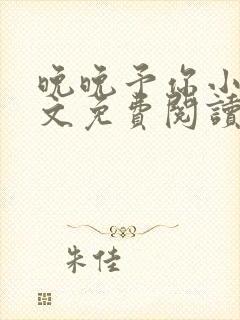 晚晚予你小
文免費閱讀
朱佳